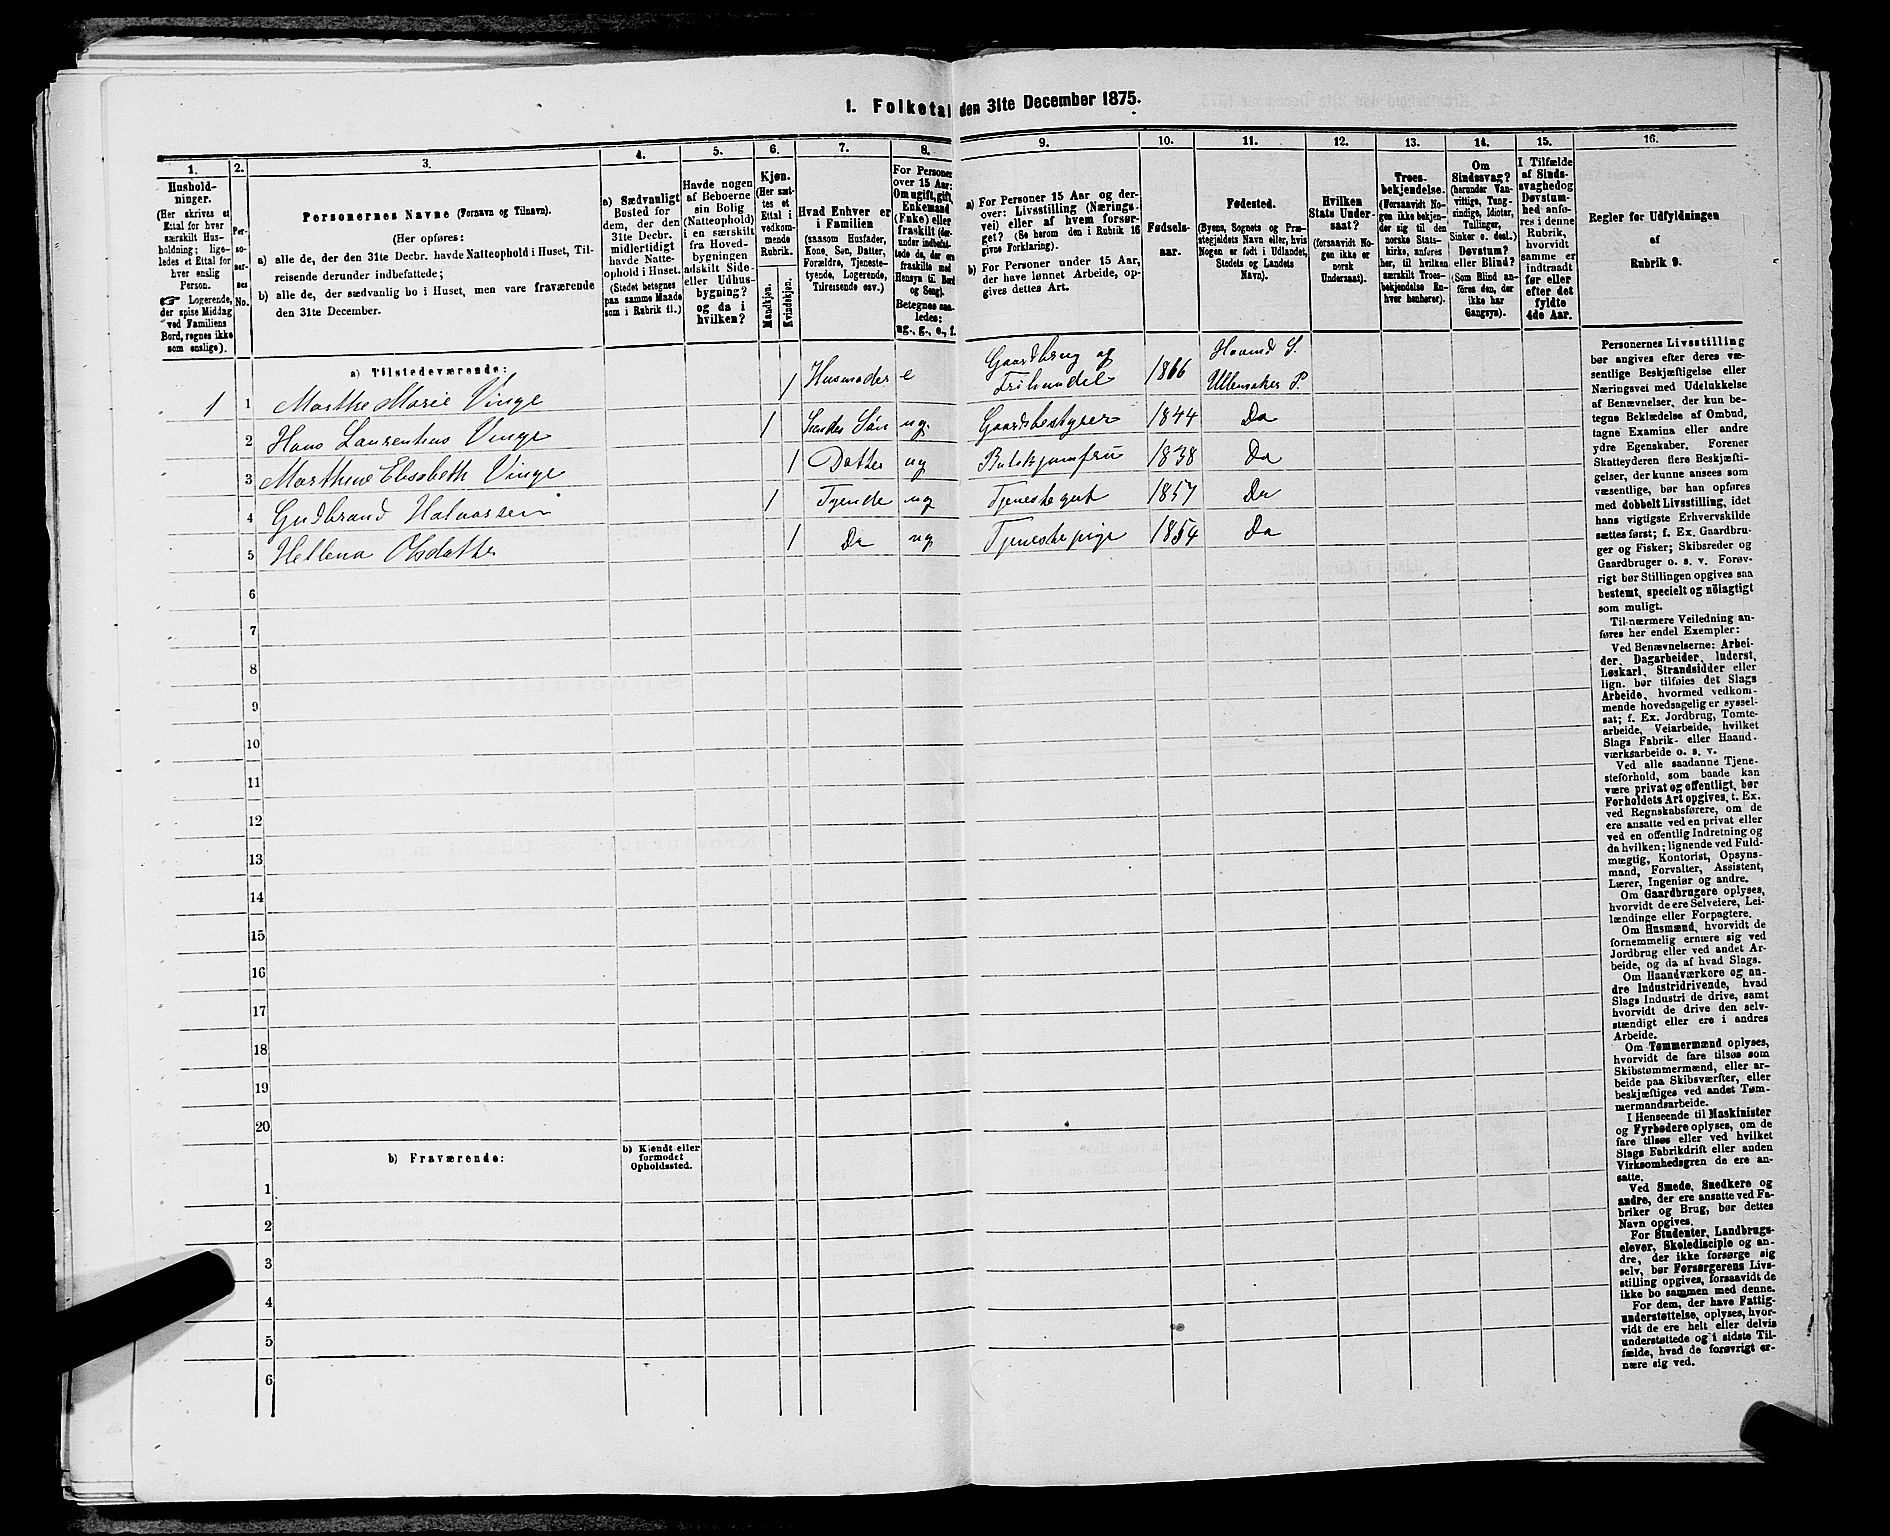 1. Folketal den 31te December 1875.
1. 2. 3. 4. 5. 6. 7. 8. 9. 10. 11. 12. 13. 14. 15. 16.
Hushold-
ninger.
(Her skrives et
Ettal for hver
særskilt Hus-
holdning; lige-
ledes et Ettal for
hver enslig
Person.
☞ Logerende,
der spise Middag
ved Familiens
Bord, regnes ikke
som enslige).
Per-
so-
ner-
nes
No.
Personernes Navne (Fornavn og Tilnavn).
(Her opføres:
a) alle de, der den 31te Decbr. havde Natteophold i Huset, Til-
reisende derunder indbefattede;
b) alle de, der sædvanlig bo i Huset, men vare fraværende
den 31te December.
a) Sædvanligt
Bosted for
dem, der den
31te Decbr.
midlertidigt
havde Natte-
ophold i Huset.
(Stedet betegnes
paa samme Maade
som i Rubrik 11.)
Havde nogen
af Beboerne
sin Bolig
(Natteophold)
i en særskilt
fra Hoved-
bygningen
adskilt Side-
eller Udhus-
bygning?
og da i
hvilken?
Kjøn.
(Her sæt-
tes et
Ettal i
vedkom-
mende
Rubrik.
Mandkjøn.
Kvindekjøn.
Hvad Enhver er
i Familien
(saasom Husfader,
Kone, Søn, Datter,
Forældre, Tjeneste-
tyende, Logerende,
Tilreisende osv.)
For Personer
over 15 Aar:
Om ugift, gift,
Enkemand
(Enke) eller
fraskilt (der-
under indbefat-
tede de, der ere
fraskilte med
Hensyn til Bord
og Seng).
Betegnes saa-
ledes:
ug., g., e., f.
a) For Personer 15 Aar og der-
over: Livsstilling (Nærings-
vei) eller af hvem forsør-
get? (Se herom den i Rubrik 16
givne Forklaring).
b) For Personer under 15 Aar,
der have lønnet Arbeide, op-
gives dettes Art.
Fødsels-
aar.
Fødested.
(Byens, Sognets og Præ-
stegjeldets Navn eller, hvis
Nogen er født i Udlandet,
Stedets og Landets
Navn).
Hvilken
Stats Under-
saat?
(forsaavidt No-
gen ikke er
norsk
Undersaat).
Troes-
bekjendelse.
(Forsaavidt No-
gen ikke bekjen-
der sig til den
norske Stats-
kirke, anføres
her, til hvilken
særskilt Troes-
bekjendelse En-
hver henhører).
Om
Sindssvag?
(herunder Van-
vittige, Tung-
sindige, Idioter,
Tullinger,
Sinker o. desl.)
Døvstum?
eller Blind?
(Som Blind an-
føres den, der
ikke har
Gangsyn).
I Tilfælde
af Sinds-
svaghed og
Døvstum-
hed anfø-
res i denne
Rubrik,
hvorvidt
samme er
indtraadt
før eller
efter det
fyldte
4de Aar.
Regler for Udfyldningen
af
Rubrik 9.
a) Tilstedeværende:
1 1 Marthe Marie Vinge 1 Husmoder e Gaardbrug og Trihandel 1866 Hovind S. Ullensaker P.
2 Hans Laurentius Vinge 1 Søn ug. Gaardsbestyrer 1844 Do
3 Marthine Elisabeth Vinge 1 Datter ug 1838 Do
4 Gudbrand Halvorsen 1 Tyende ug Tjenestegut 1857 Do
5 Hellena Olsdatter 1 Do ug Tjenestepige 1854 Do
6
7
8
9
10
11
12
13
14
15
16
17
18
19
20
b) Fraværende:
b) Kjendt eller
formodet
Opholdssted.
1
2
3
4
5
6
Personernes Livsstilling
bør angives efter deres væ-
sentlige Beskjæftigelse eller
Næringsvei med Udelukkelse
af Benævnelser, der kun be-
tegne Beklædelse af Ombud,
tagne Examina eller andre
ydre Egenskaber. Forener
Skatteyderen flere Beskjæfti-
gelser, der kunne ansees som
væsentlige, bør han opføres
med dobbelt Livsstilling, idet
hans vigtigste Erhvervskilde
sættes først; f. Ex. Gaardbru-
ger og Fisker; Skibsreder og
Gaardbruger o. s. v. Forøv-
rigt bør Stillingen opgives saa
bestemt, specielt og nöiagtigt
som muligt.
Til nærmere Veiledning an-
føres her endel Exempler:
Ved Benævnelserne: Arbei-
der, Dagarbeider, Inderst,
Løskarl, Strandsidder eller
lign. bør tilføies det Slags
Arbeide, hvormed vedkom-
mende hovedsagelig er syssel-
sat; f. Ex. Jordbrug, Tomte-
arbeide, Veiarbeide, hvilket
Slags Fabrik- eller Haand-
værksarbeide o. s. v.
Ved alle saadanne Tjene-
steforhold, som baade kan
være privat og offentligt, bør
Forholdets Art opgives, f. Ex.
ved Regnskabsførere, om de
ere ansatte ved en privat eller
ved en offentlig Indretning og
da hvilken; lignende ved Fuld-
mægtig, Kontorist, Opsyns-
mand, Forvalter, Assistent,
Lærer, Ingeniør og andre.
Om Gaardbrugere oplyses,
hvorvidt de ere Selveiere, Lei-
lændinge eller Forpagtere.
Om Husmænd, hvorvidt de
fornemmelig ernære sig ved
Jordbrug eller ved andet Ar-
beide, og da af hvad Slags.
Om Haandværkere og an-
dre Industridrivende, hvad
Slags Industri de drive, samt
hvorvidt de drive den selv-
stændigt eller ere i andres
Arbeide.
Om Tømmermænd oplyses,
hvorvidt de fare tilsøs som
Skibstømmermænd, eller ar-
beide paa Skibsværfter, eller
beskjæftiges ved andet Tøm-
mermandsarbeide.
I Henseende til Maskinister
og Fyrbødere oplyses, om de
fare tilsøs eller ved hvilket
Slags Fabrikdrift eller anden
Virksomhedsgren de ere an-
satte.
Ved Smede, Snedkere og
andre, der ere ansatte ved Fa-
briker og Brug, bør dettes
Navn opgives.
For Studenter, Landbrugs-
elever, Skoledisciple og an-
dre, der ikke forsørge sig
selv, bør Forsørgerens Livs-
stilling opgives, forsaavidt de
ikke bo sammen med denne.
For dem, der have Fattig-
understøttelse, oplyses, hvor-
vidt de ere helt eller delvis
understøttede og i sidste Til-
fælde, hvad de forøvrigt er-
nære sig ved.